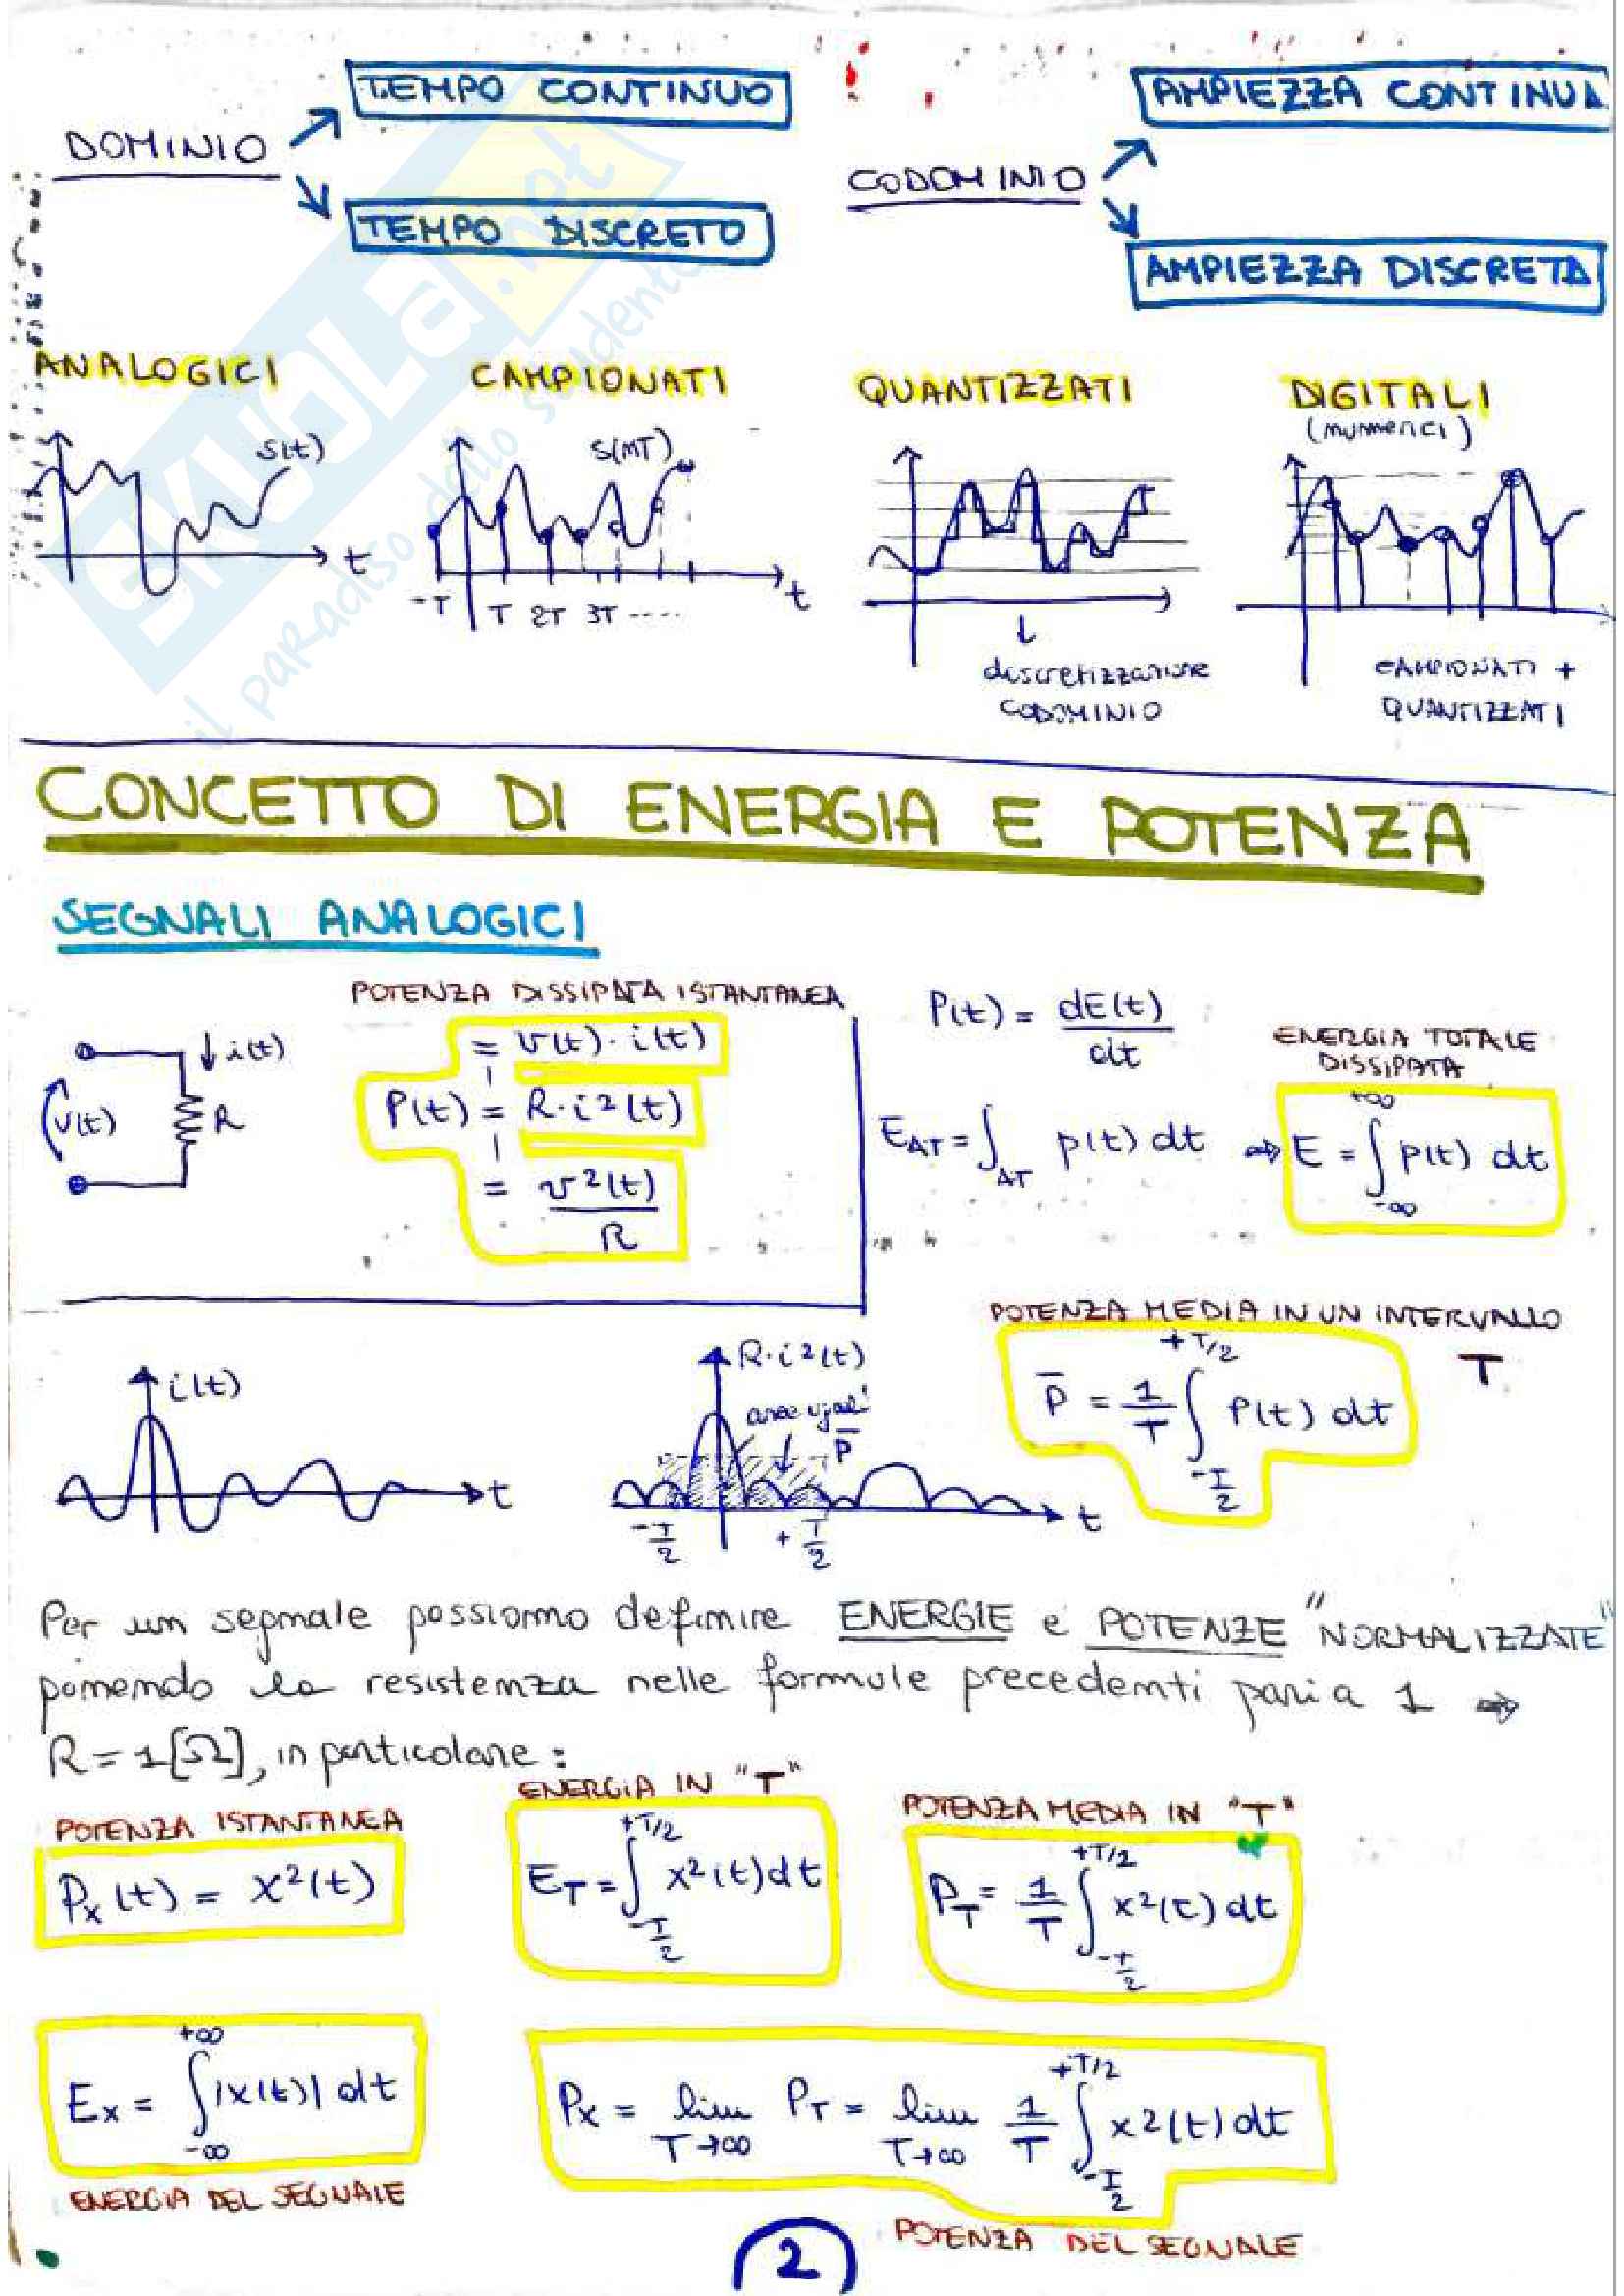 TEMPO CONTINUO
DOMINIO
TEMPO DISCRETO
AMPIEZZA CONTINUA
CODOMINIO
AMPIEZZA DISCRETA
SKUOLA.net
il paradiso dello studente
ANALOGICI
s(t)
t
CAMPIONATI
s(nT)
-T T 2T 3T ....
t
QUANTIZZATI
discretizzazione
CODOMINIO
DIGITALI
(numerici)
CAMPIONATI +
QUANTIZZATI
CONCETTO DI ENERGIA E POTENZA
SEGNALI ANALOGICI
i(t)
v(t)
R
POTENZA DISSIPATA ISTANTANEA
= v(t) · i(t)
P(t) = R · i²(t)
= v²(t) / R
P(t) = dE(t) / dt
E_ΔT = ∫_ΔT p(t) dt ⇒
ENERGIA TOTALE
DISSIPATA
E = ∫_{-∞}^{+∞} p(t) dt
i(t)
t
R · i²(t)
aree uguali
P̅
-T/2
+T/2
t
POTENZA MEDIA IN UN INTERVALLO
T
P̅ = 1/T ∫_{-T/2}^{+T/2} P(t) dt
Per un segnale possiamo definire ENERGIE e POTENZE "NORMALIZZATE"
ponendo la resistenza nelle formule precedenti pari a 1 ⇒
R = 1[Ω], in particolare:
POTENZA ISTANTANEA
P_x(t) = x²(t)
ENERGIA IN "T"
E_T = ∫_{-T/2}^{+T/2} x²(t) dt
POTENZA MEDIA IN "T"
P_T = 1/T ∫_{-T/2}^{+T/2} x²(t) dt
E_x = ∫_{-∞}^{+∞} |x(t)| dt
ENERGIA DEL SEGNALE
P_x = lim_{T→∞} P_T = lim_{T→∞} 1/T ∫_{-T/2}^{+T/2} x²(t) dt
POTENZA DEL SEGNALE
2